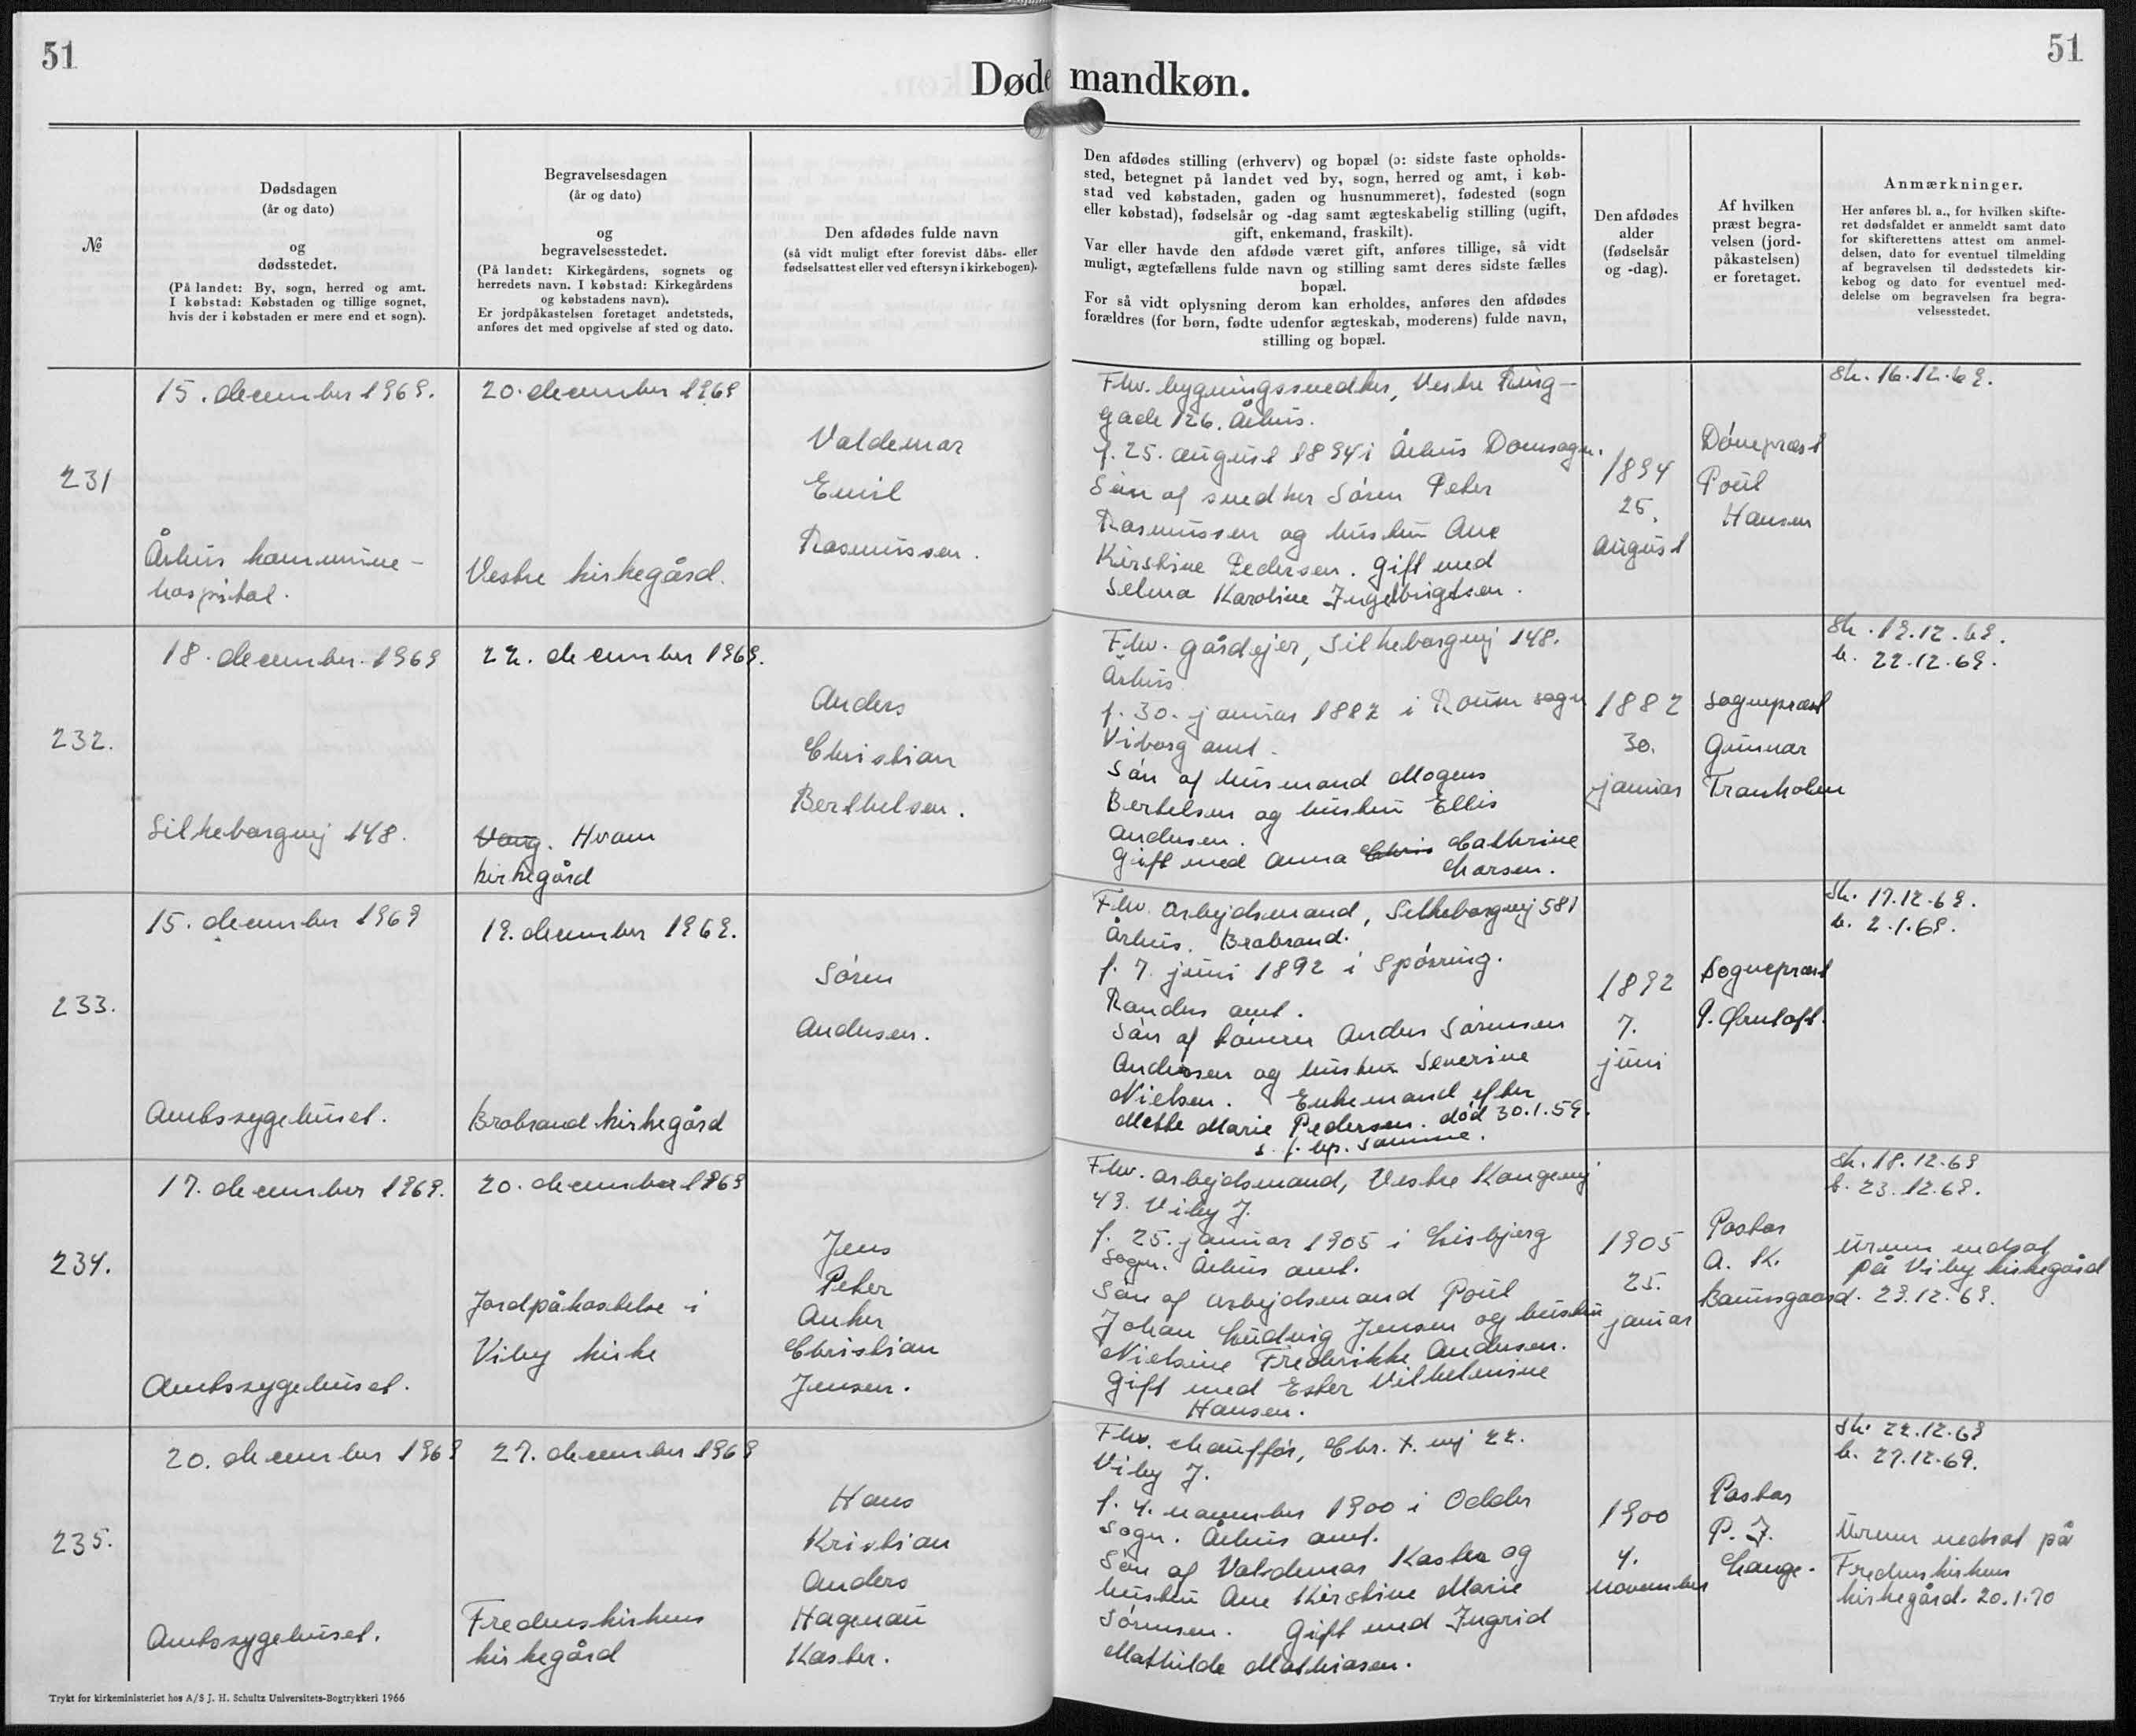 51
51
Døde mandkøn.
№
Dødsdagen
(år og dato)
og
dødsstedet.
(På landet: By, sogn, herred og amt.
I købstad: Købstaden og tillige sognet,
hvis der i købstaden er mere end et sogn).
Begravelsesdagen
(år og dato)
og
begravelsesstedet.
(På landet: Kirkegårdens, sognets og
herredets navn. I købstad: Kirkegårdens
og købstadens navn).
Er jordpåkastelsen foretaget andetsteds,
anføres det med opgivelse af sted og dato.
Den afdødes fulde navn
(så vidt muligt efter forevist dåbs- eller
fødselsattest eller ved eftersyn i kirkebogen).
Den afdødes stilling (erhverv) og bopæl (ɔ: sidste faste opholds-
sted, betegnet på landet ved by, sogn, herred og amt, i køb-
stad ved købstaden, gaden og husnummeret), fødested (sogn
eller købstad), fødselsår og -dag samt ægteskabelig stilling (ugift,
gift, enkemand, fraskilt).
Var eller havde den afdøde været gift, anføres tillige, så vidt
muligt, ægtefællens fulde navn og stilling samt deres sidste fælles
bopæl.
For så vidt oplysning derom kan erholdes, anføres den afdødes
forældres (for børn, fødte udenfor ægteskab, moderens) fulde navn,
stilling og bopæl.
Den afdødes
alder
(fødselsår
og -dag).
Af hvilken
præst begra-
velsen (jord-
påkastelsen)
er foretaget.
Anmærkninger.
Her anføres bl. a., for hvilken skifte-
ret dødsfaldet er anmeldt samt dato
for skifterettens attest om anmel-
delsen, dato for eventuel tilmelding
af begravelsen til dødsstedets kir-
kebog og dato for eventuel med-
delelse om begravelsen fra begra-
velsesstedet.
231
15. december 1969.
Århus kommune-
hospital.
20. december 1969
Vestre kirkegård.
Valdemar
Emil
Rasmussen.
Fhv. bygningssnedker, Vestre Ring-
gade 126. Århus.
f. 25. august 1894 i Århus Domsogn.
Søn af snedker Søren Peter
Rasmussen og hustru Ane
Kirstine Pedersen. Gift med
Selma Karoline Ingelbrigtsen.
1894
25.
august
Dompræst
Poul
Hansen
Sk. 16.12.69.
232.
18. december 1969
Silkeborgvej 148.
22. december 1969.
Vang. Hvam
kirkegård
Anders
Christian
Berthelsen.
Fhv. gårdejer, Silkeborgvej 148.
Århus
f. 30. januar 1882 i Roum sogn
Viborg amt.
Søn af husmand Mogens
Bertelsen og hustru Ellis
Andersen.
Gift med Anna Chris Cathrine
Larsen.
1882
30.
januar
Sognepræst
Gunnar
Tranholm
Sk. 19.12.69.
b. 22.12.69.
233.
15. december 1969
Amtssygehuset.
19. december 1969.
Brabrand kirkegård
Søren
Andersen.
Fhv. arbejdsmand, Silkeborgvej 581
Århus. Brabrand.
f. 7. juni 1892 i Spørring.
Randers amt.
Søn af tømrer Anders Sørensen
Andersen og hustru Severine
Nielsen. Enkemand efter
Mette Marie Pedersen. død 30.1.59.
s. f. bp. samme.
1892
7.
juni
Sognepræst
P. Ørntoft.
Sk. 17.12.69.
b. 2.1.69.
234.
17. december 1969.
Amtssygehuset.
20. december 1969
Jordpåkastelse i
Viby kirke
Jens
Peter
Anker
Christian
Jensen.
Fhv. arbejdsmand, Vestre Kongevej
43. Viby J.
f. 25. januar 1905 i Lisbjerg
Sogn. Århus amt.
Søn af arbejdsmand Poul
Johan Ludvig Jensen og hustru
Nielsine Frederikke Andersen.
Gift med Ester Vilhelmine
Hansen.
1905
25.
januar
Pastor
A. K.
Baunsgaard.
Sk. 18.12.69
b. 23.12.69.
Urnen nedsat
på Viby kirkegård
29.12.69.
235.
20. december 1969
Amtssygehuset.
27. december 1969
Fredenskirkens
kirkegård
Hans
Kristian
Anders
Hagenau
Koster.
Fhv. chauffør, Chr. X. vej 22.
Viby J.
f. 4. november 1900 i Odder
Sogn. Århus amt.
Søn af Valdemar Koster og
hustru Ane Kirstine Marie
Sørensen. Gift med Ingrid
Mathilde Mathiasen.
1900
4.
november
Pastor
P. J.
Lange.
Sk. 22.12.69
b. 27.12.69.
Urnen nedsat på
Fredenskirkens
kirkegård. 20.1.70
Trykt for kirkeministeriet hos A/S J. H. Schultz Universitets-Bogtrykkeri 1966